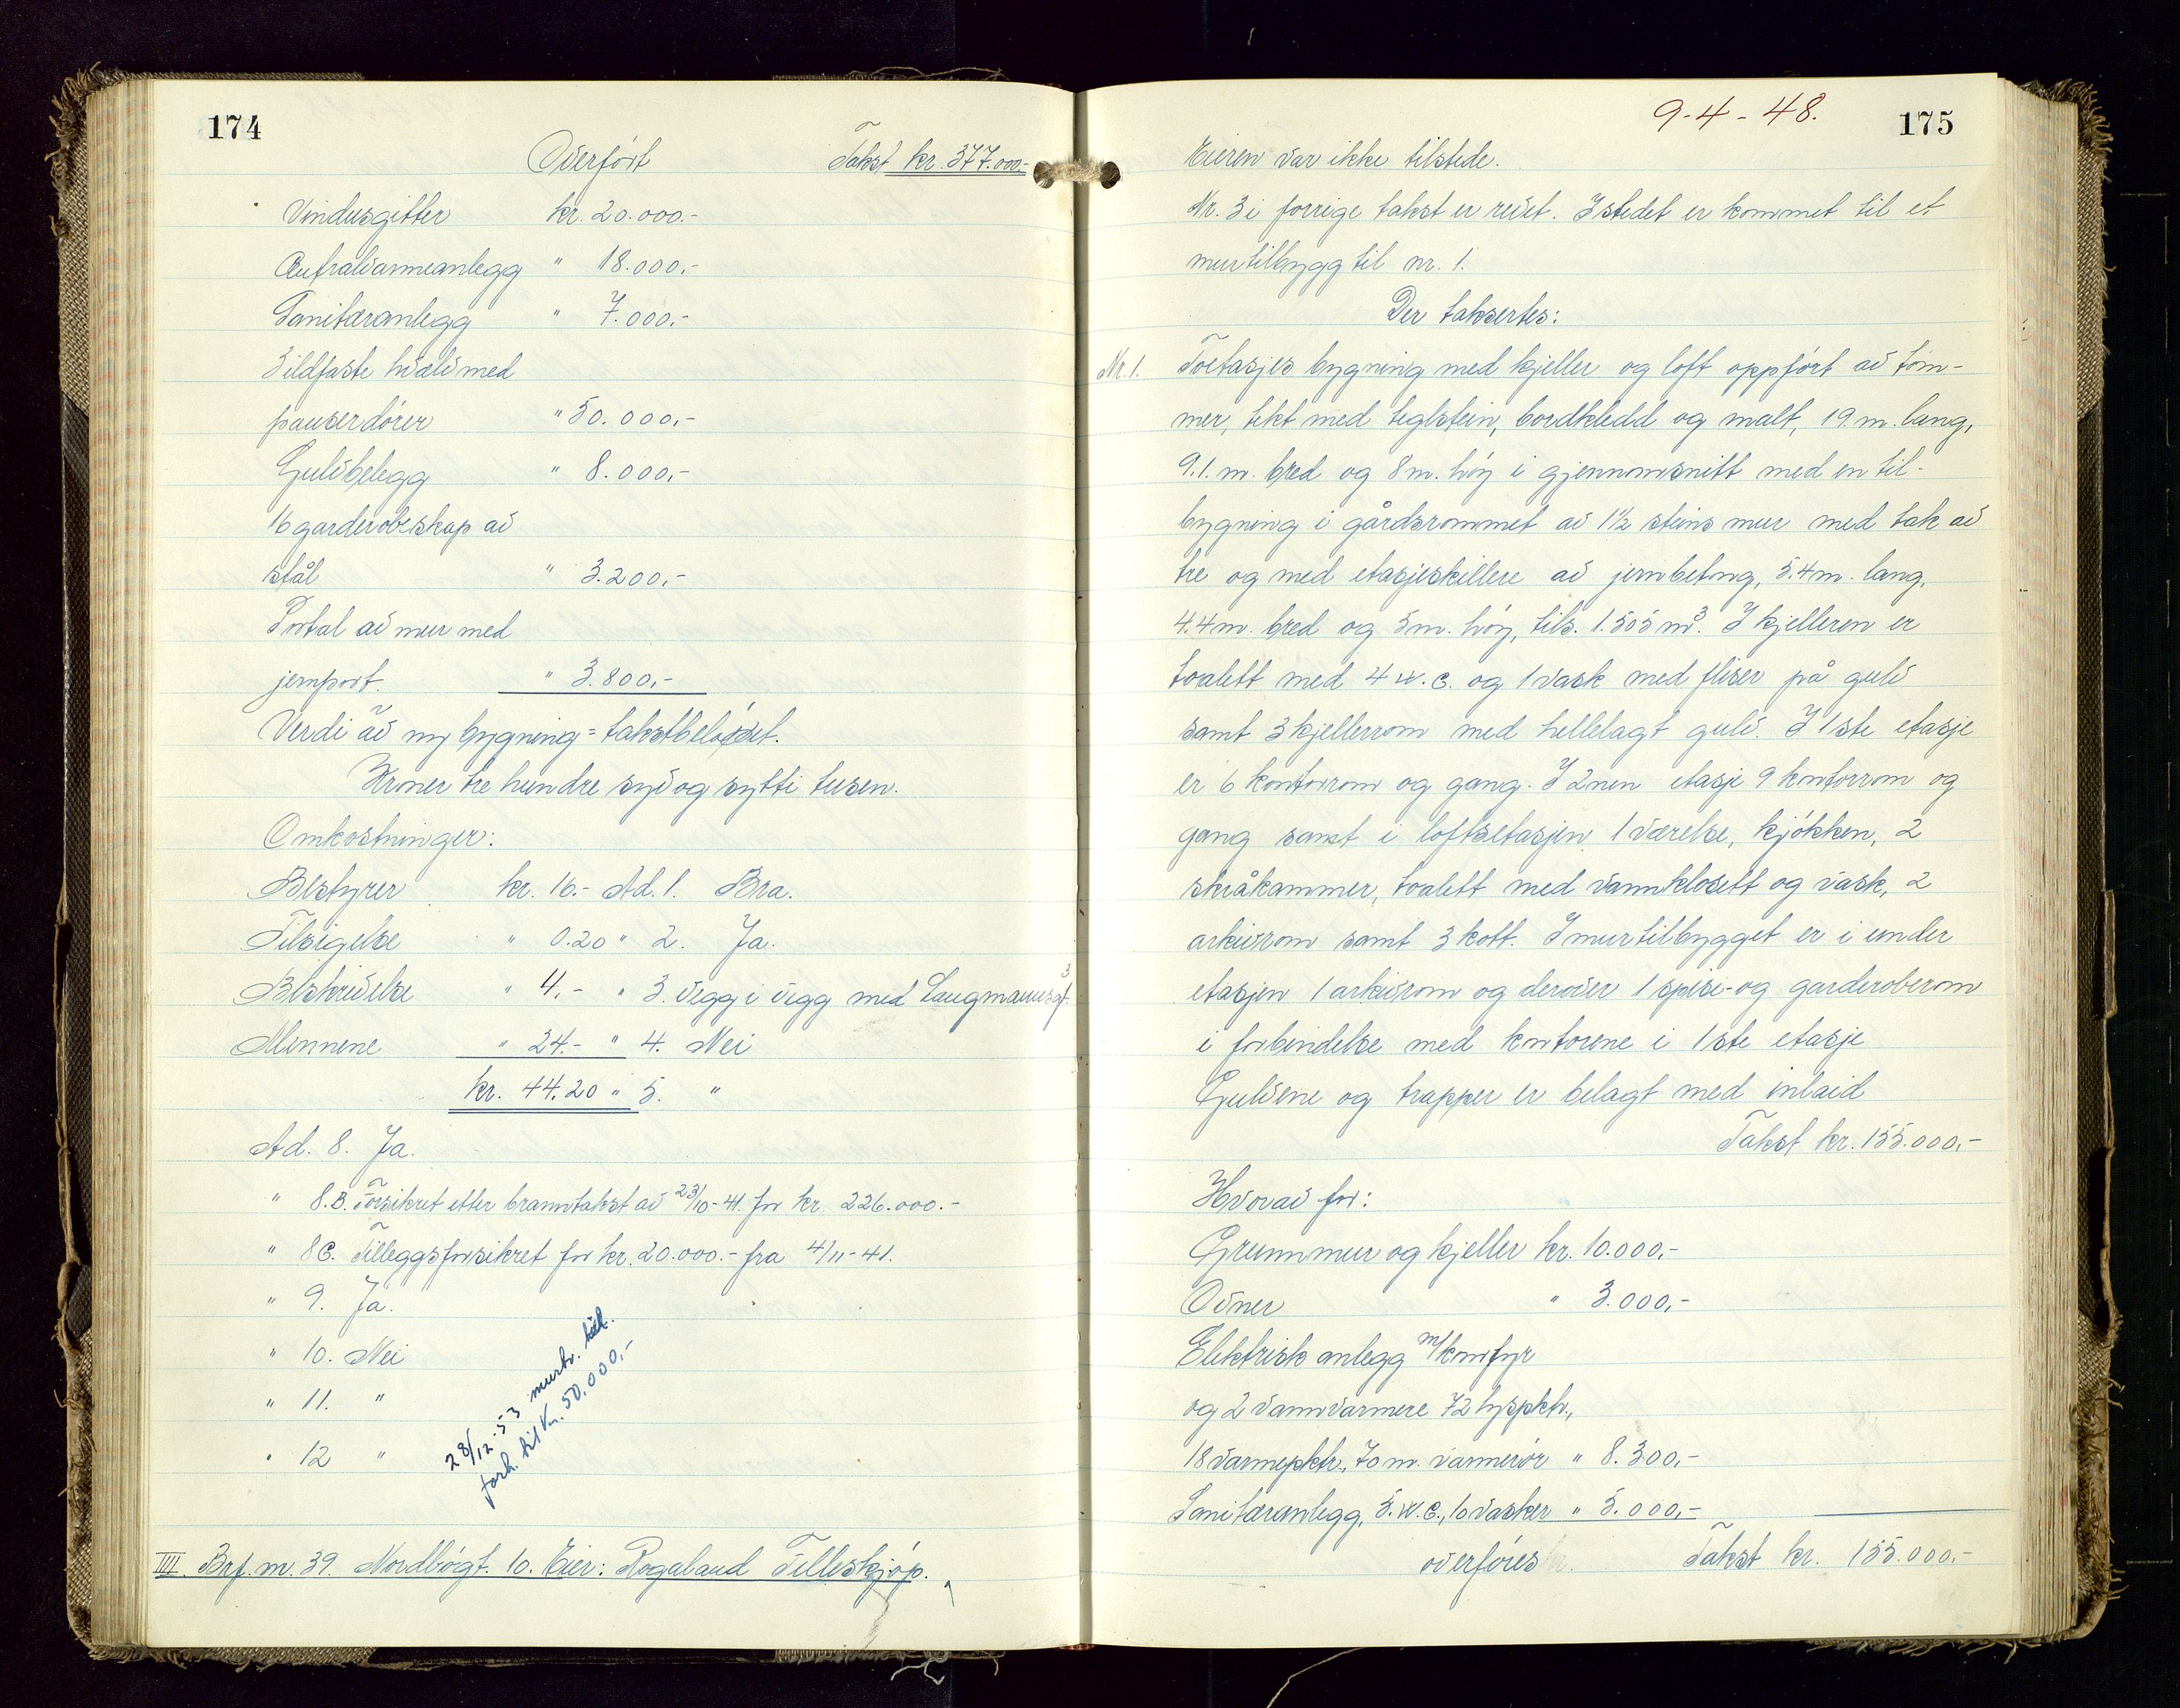 174
Overført Takst kr. 377.000.-
Vindusgitter kr. 20.000.-
Centralvarmeanlegg " 18.000.-
Sanitæranlegg " 7.000.-
3 ildfaste hvelv med
panserdører " 50.000,-
Gulvbelegg " 8.000,-
16 garderobeskap av
stål " 3.200,-
Portal av mur med
jernport. " 3.800,-
Verdi av ny bygning = takstbeløpet.
Kroner tre hundre syv og sytti tusen.
Omkostninger:
Bestyrer kr. 16.- Ad. 1. Bra.
Tilsigelse " 0.20 " 2. Ja.
Beskrivelse " 4,- " 3. Vegg i vegg med Laugmannsgt. 3
Mennene " 24.- " 4. Nei
kr. 44.20 " 5. "
Ad. 8. Ja.
" 8.B. Forsikret etter branntakst av 23/10-41. for kr. 226.000.-
" 8C. Tilleggsforsikret for kr. 20.000.- fra 4/11-41.
" 9. Ja.
" 10. Nei
" 11. "
" 12 "
28/12-53 murtv. till.
forh. til kr. 50,000,-
IIII. Brf. nr. 39. Nordbøgt. 10. Eier: Rogaland Felleskjøp.
9-4-48.
175
Eieren var ikke tilstede.
Nr. 3 i forrige takst er revet. I stedet er kommet til et
murtilbygg til nr. 1.
Der taksertes:
Nr. 1. Toetasjes bygning med kjeller og loft oppført av tøm-
mer, tekt med teglstein, bordkledd og malt, 19. m. lang,
9.1. m. bred og 8 m. høy i gjennomsnitt med en til-
bygning i gårdsrommet av 1½ steins mur med tak av
tre og med etasjeskillere av jernbetong, 5.4 m. lang,
4.4 m. bred og 5 m. høy, tils. 1.505 m³. I kjelleren er
toalett med 4 w.c. og 1 vask med fliser på gulv
samt 3 kjellerrom med hellelagt gulv. I 1ste etasje
er 6 kontorrom og gang. I 2nen etasje 9 kontorrom og
gang samt i loftsetasjen 1 værelse, kjøkken, 2
skråkammer, toalett med vannklosett og vask, 2
arkivrom samt 3 kott. I murtilbygget er i under
etasjen 1 arkivrom og derover 1 spise- og garderoberom
i forbindelse med kontorene i 1ste etasje
Gulvene og trapper er belagt med inlaid
Takst kr. 155.000,-
Hvorav for:
Grunnmur og kjeller kr. 10.000,-
Ovner " 3.000,-
Elektrisk anlegg m/komfyr
og 2 vannvarmere 72 lyspktr.,
18 varmepktr., 70 m. varmerør " 8.300,-
Sanitæranlegg, 5. w.c., 10 vasker " 5.000,-
overføres kr. Takst kr. 155.000.-